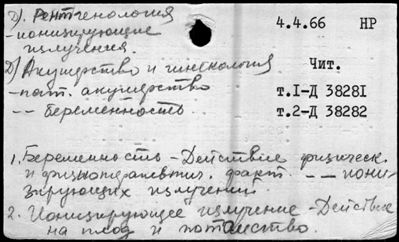 2). Рентгенология
- ионизирующие
излучения.
4.4.66 НР
Д) Акушерство и гинекология
- пат. акушерство
-- беременность.
Чит.
т.I-Д 38281
т.2-Д 38282
1. Беременность - Действие физическ.
и физиотерапевтич. факт. -- иони-
зирующих излучений
2. Ионизирующее излучение - Действие
на плод и потомство.